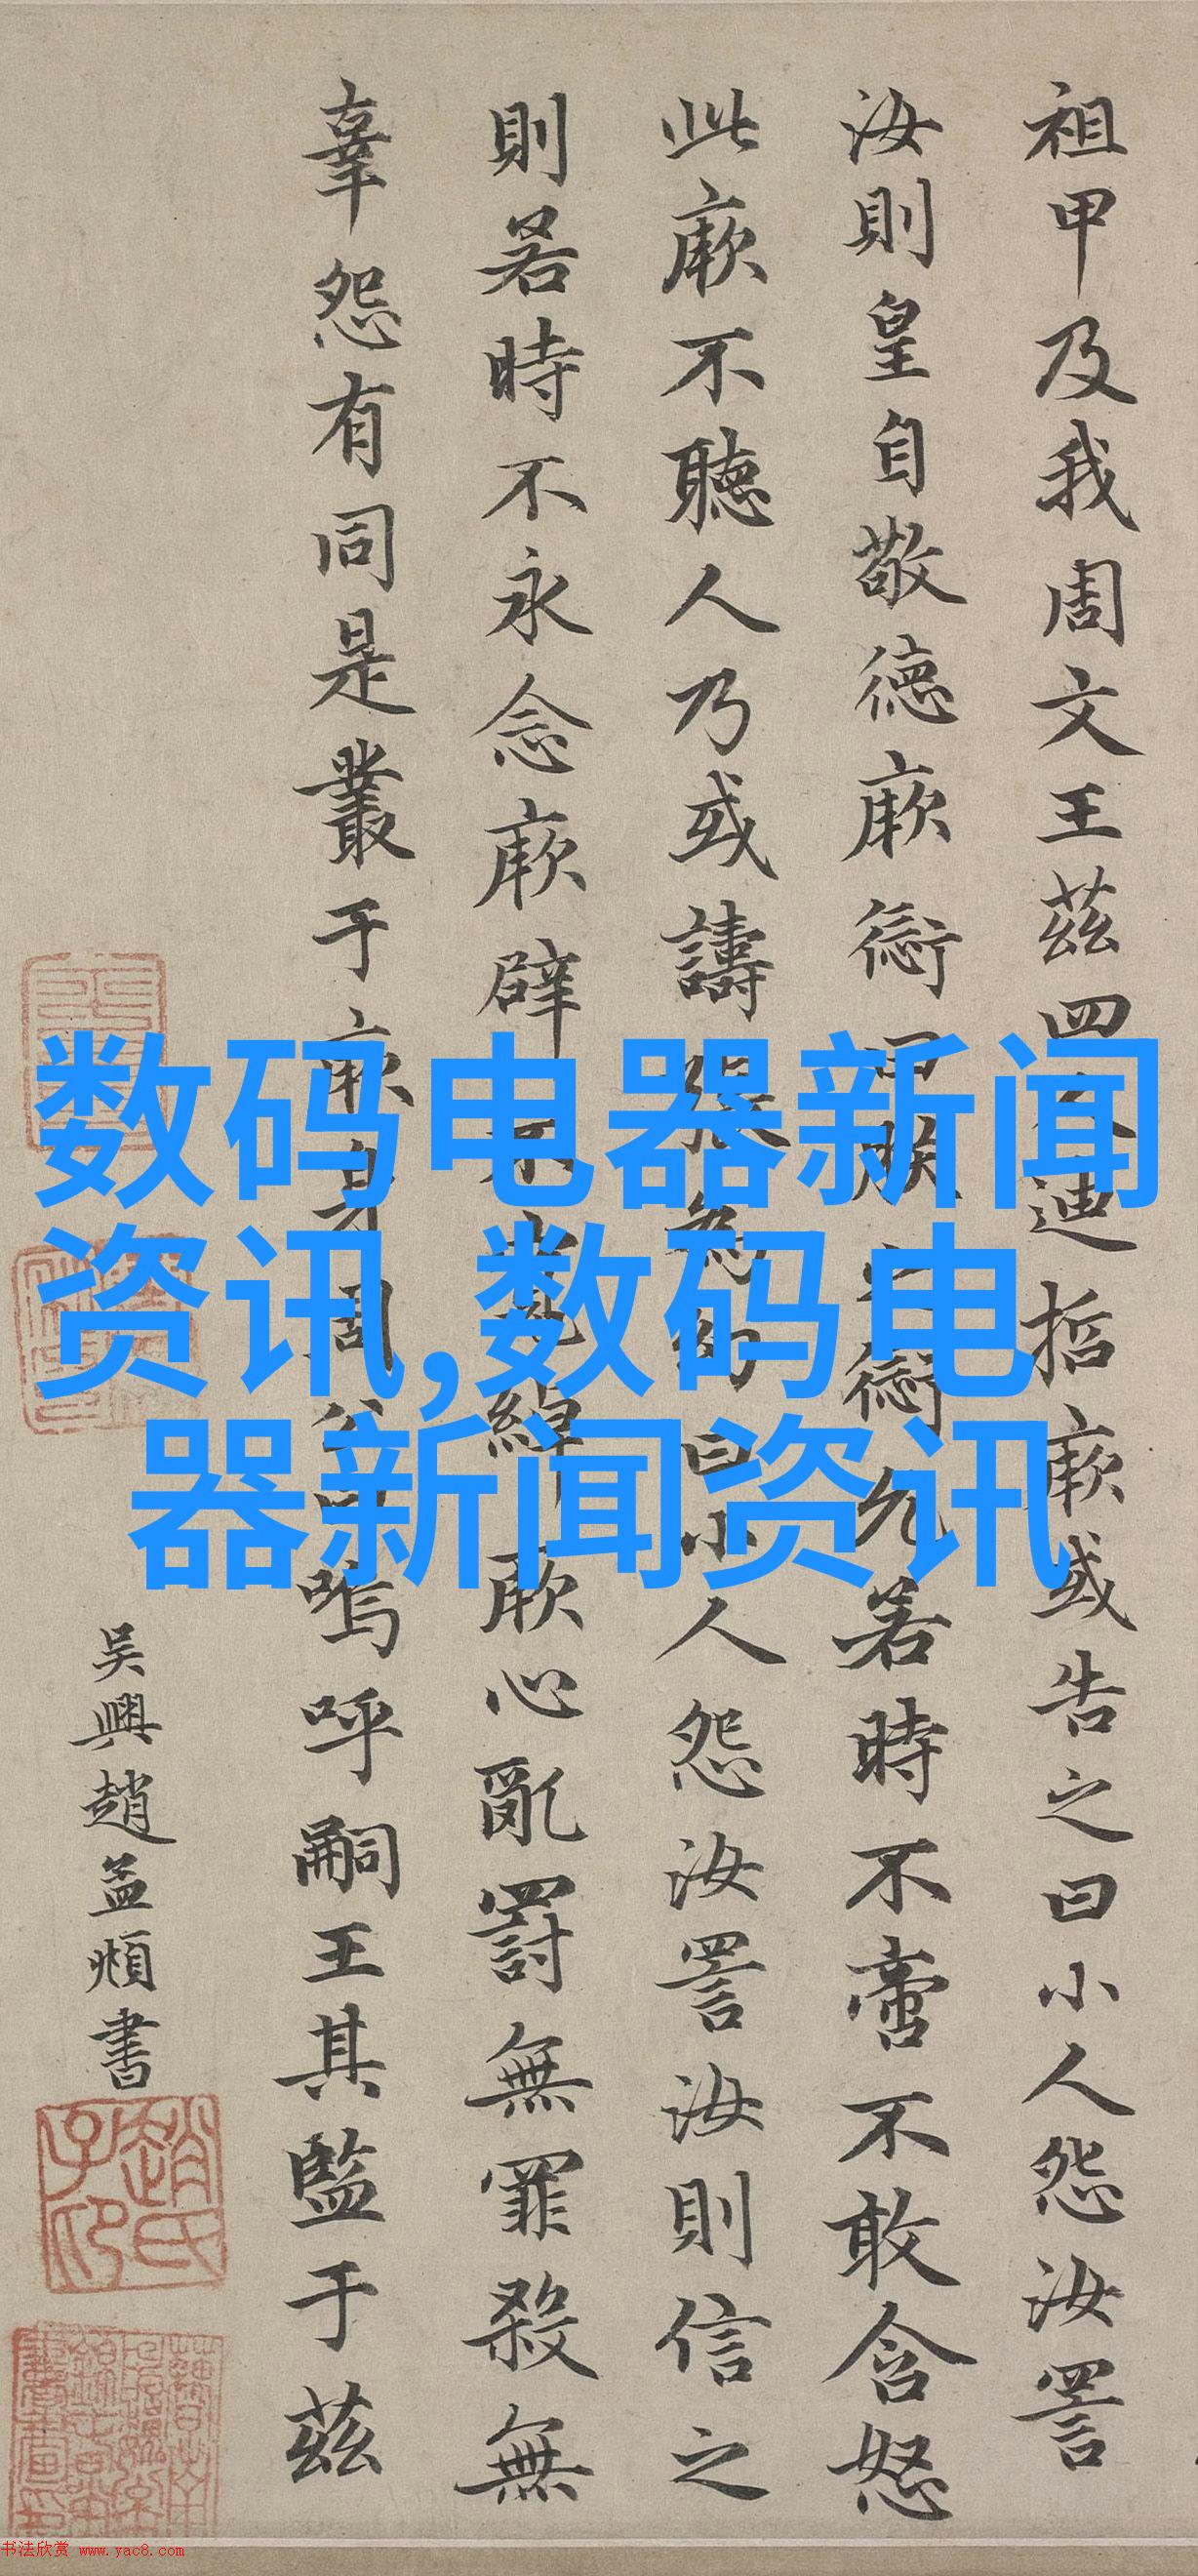 祖甲及我周文王茲四人迪哲厥或告之曰小人怨汝詈
汝則皇自敬德厥愆曰朕之愆允若時不啻不敢含怒
此厥不聽人乃或譸張為幻曰小人怨汝詈汝則信之
則若時不永念厥辟不寬綽厥心亂罰無罪殺無
辜怨有同是叢于厥身周公曰嗚呼嗣王其監于茲
吴興趙孟頫書
趙氏子昂
数码电器新闻
资讯,数码电
器新闻资讯
书法欣赏 www.yac8.com